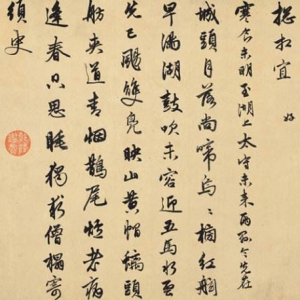 總相宜 好
寒食未明至湖上太守未來兩縣令先在
城頭月落尚啼烏〻榜紅舷
早滿湖鼓吹未容迎五馬水雲
先已颺雙鳧映山黃帽螭頭
舫夾道青煙鵲尾爐老病
逢春只思睡獨求僧榻寄
須臾